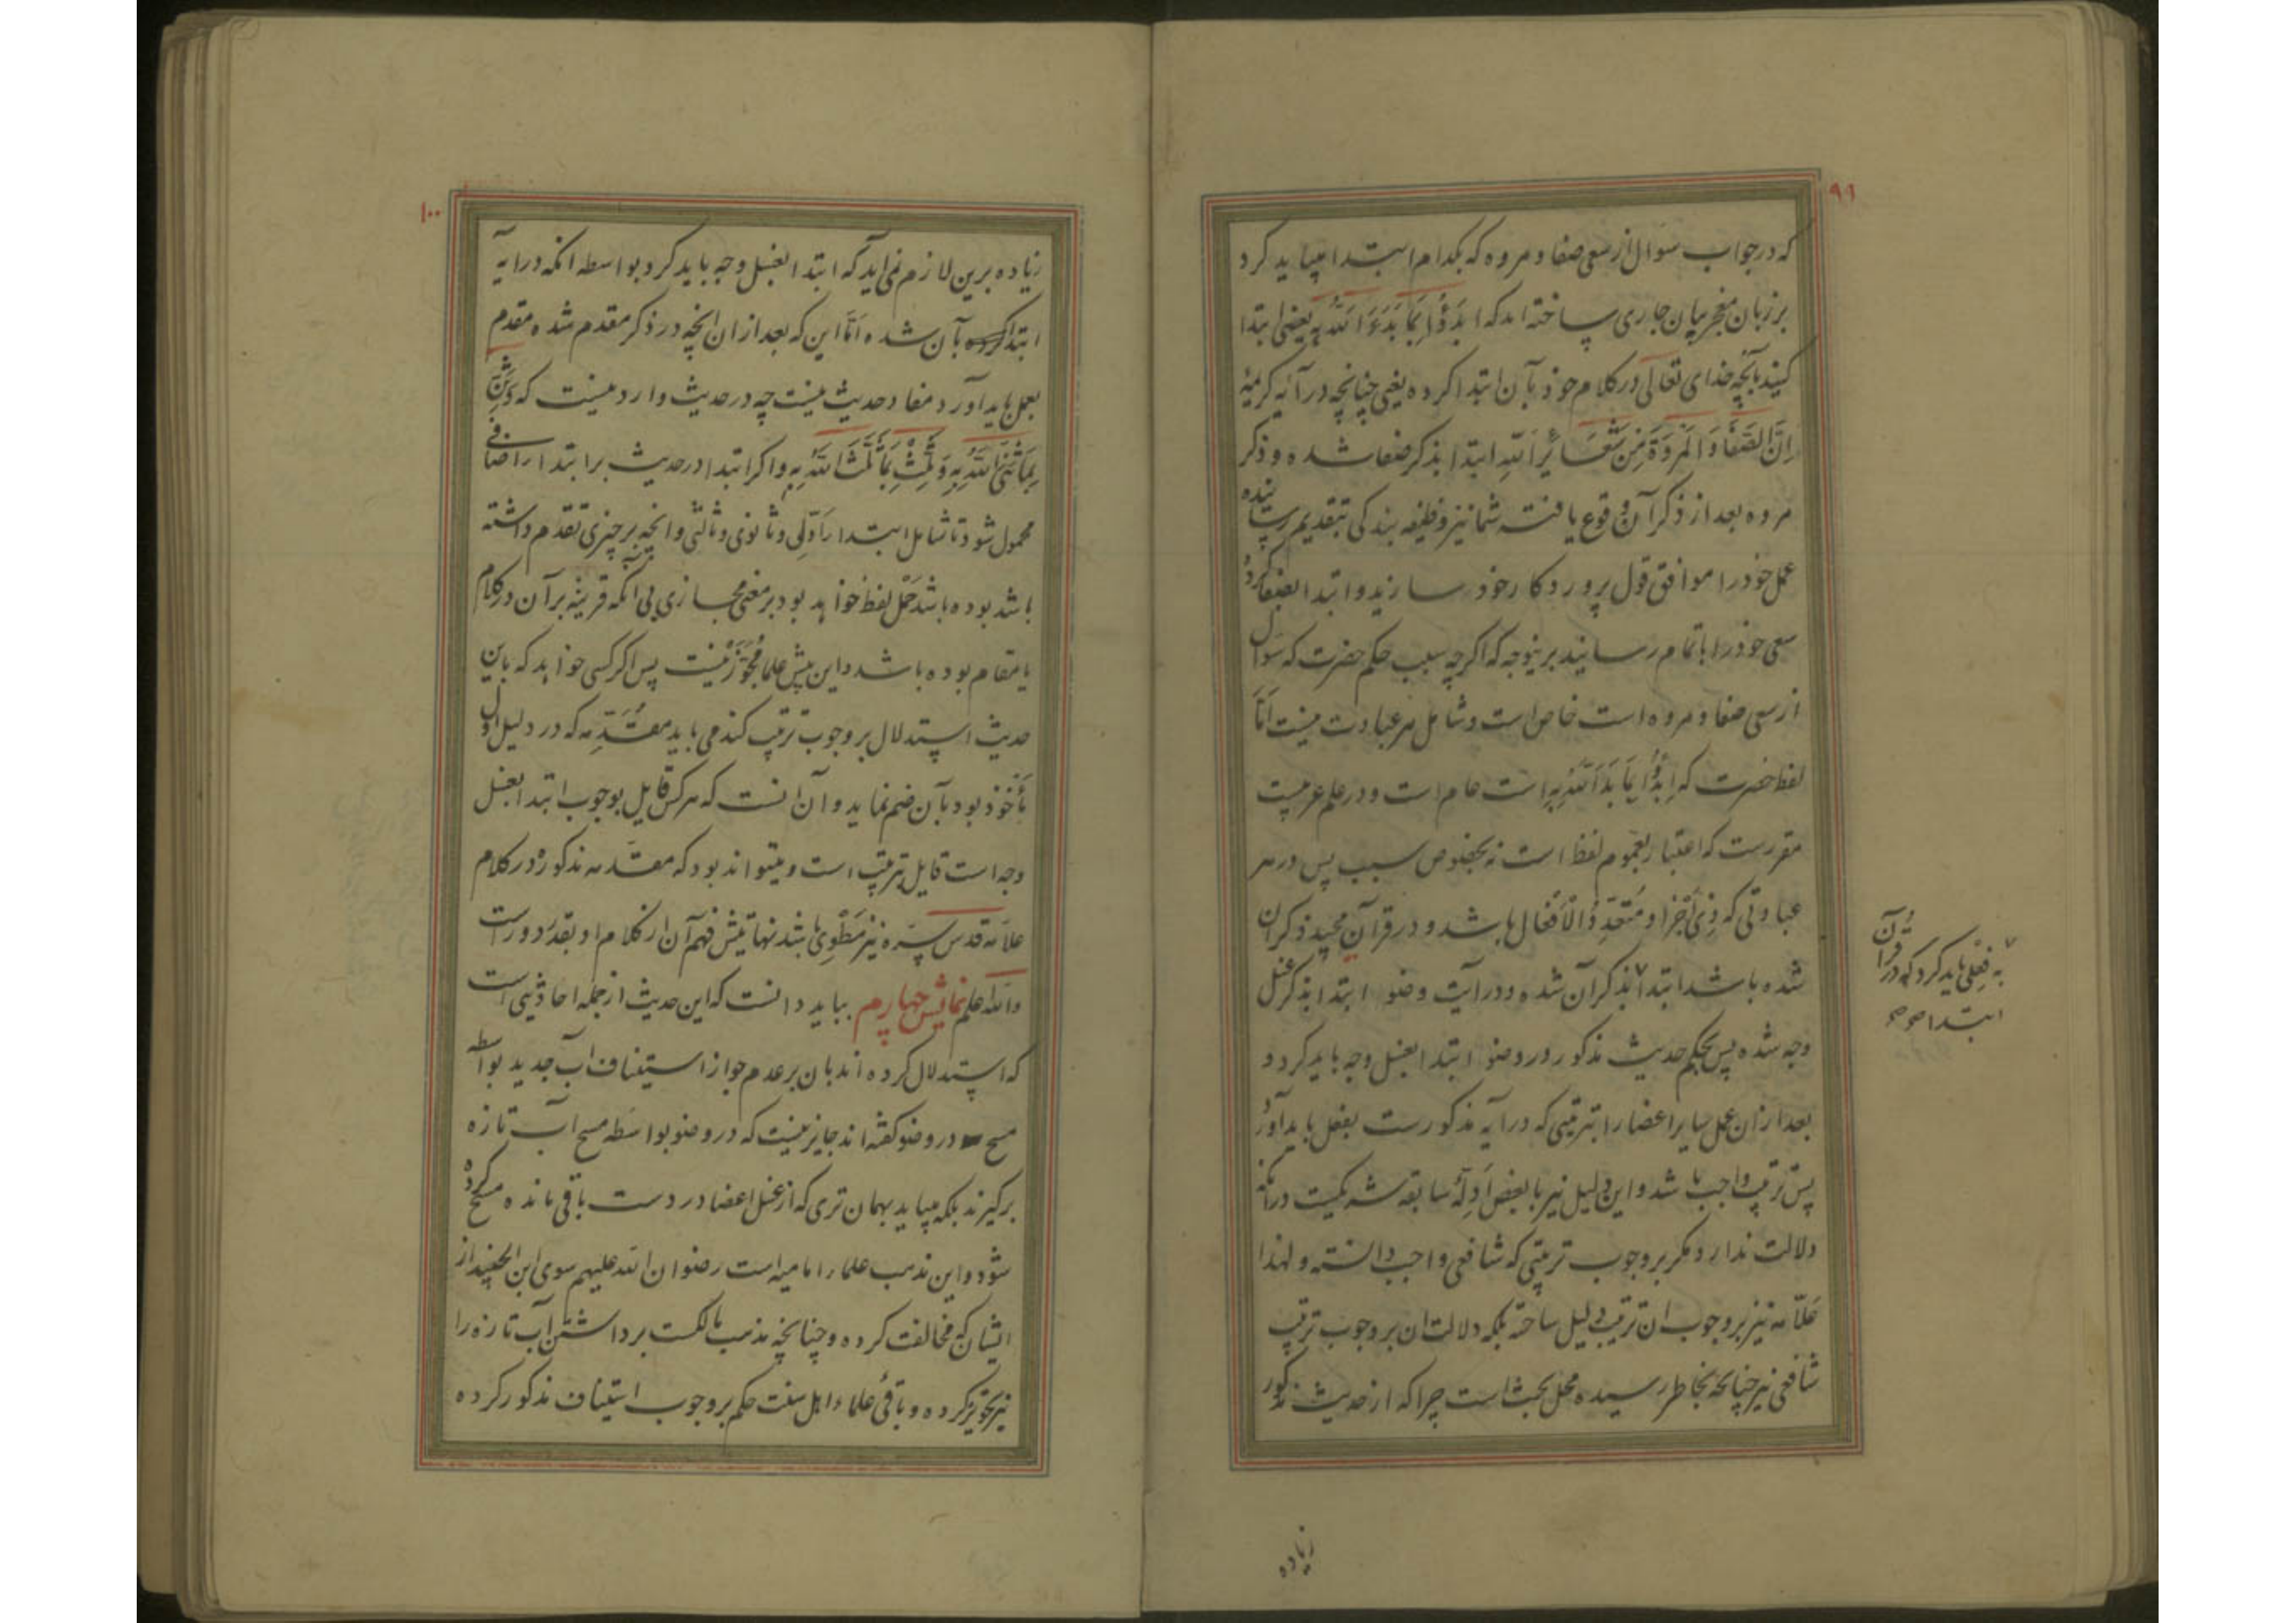 ۹۹
که در جواب سؤال از سعی صفا و مروه که بکدام ابتدا میباید کرد
بر زبان معجز بیان جاری ساخته اند که ابدَؤُا بِمَا بَدَءَ اللّٰهُ بِهِ یعنی ابتدا
کنید بآنچه خدای تعالی در کلام خود بآن ابتدا کرده یعنی چنانچه در آیه کریمهٔ
اِنَّ الصَّفَا وَ الْمَرْوَةَ مِنْ شَعَائِرِ اللّٰهِ ابتدا بذکر صفا شده و ذکر
مروه بعد از ذکر آن وقوع یافته شما نیز وظیفه بندکی بتقدیم رسانیده
عمل خود را موافق قول پروردکار خود سازید و ابتدا بصفا کرده
سعی خود را باتمام رسانید برینوجه که اکرچه سبب حکم حضرت که سؤال
از سعی صفا و مروه است خاص است و شامل هر عبادت نیست امَّا
لفظ حضرت که اِبدَؤُا بِمَا بَدَاَ اللّٰهُ بِهِ است عام است و در علم عربیت
مقررست که اعتبار بعموم لفظ است نه بخصوص سبب پس در هر
عبادتی که ذِی اَجْزا و مُتَعَدِّدُ الْاَفْعَال باشد و در قرآن مجید ذکر آن
شده باشد ابتدا ۷ بذکر آن شده و در آیت وضو ابتدا بذکر غسل
وجه شده پس بحکم حدیث مذکور در وضو ابتدا بغسل وجه باید کرد و
بعد از آن عمل سایر اعضا را بترتیبی که در آیه مذکورست بفعل باید آورد
پس ترتیب واجب باشد و این دلیل نیز با بعض اَدِلّهٔ سابقه شریکیست در آنکه
دلالت ندارد مکر بر وجوب ترتیبی که شافعی واجب دانسته و لهذا
علّامه نیز بر وجوب ان ترتیب دلیل ساخته بلکه دلالت ان بر وجوب ترتیب
شافعی نیز چنانچه بخاطر رسیده محل بحث است چرا که از حدیث مذکور
۷ به فعلی باید کرد که در قرآن
ابتدا
زیاده
۱۰۰
زیاده برین لازم نمی آید که ابتدا بغسل وجه باید کرد بواسطه انکه در آیه
ابتدا کرده بآن شده امَّا این که بعد از ان انچه در ذکر مقدم شده مقدم
بعمل باید آورد مفاد حدیث نیست چه در حدیث وارد نیست که وَثَنِّ
بِمَا ثَنَّی اللّٰهُ بِهِ وَثَلِّثْ بِمَا ثَلَّثَ اللّٰهُ بِهِ و اکر ابتدا در حدیث بر ابتدا اضافی
محمول شود تا شامل ابتداء اَوّلی و ثانوی و ثالثی و انچه بر چیزی تقدم داشته
باشد بوده باشد حَمْل لفظ خواهد بود بر معنی مجازی بی آنکه قرینه بر آن در کلام
یا مقام بوده باشد و این پیش علما مُجَوَّزْ نیست پس اکر کسی خواهد که باین
حدیث استدلال بر وجوب ترتیب کند می باید مقدّمه که در دلیل اول
مأخوذ بود بآن ضم نماید و آن آنست که هر کس قایل بوجوب ابتدا بغسل
وجه است قایل بترتیب است و میتواند بود که مقدّمه مذکوره در کلام
علامه قدس سره نیز مَطْوِی باشد نهایتش فهم آن از کلام او بقدر دورست
و الله اعلم نمایش چهارم بباید دانست که این حدیث از جمله احادیثی است
که استدلال کرده اند بان بر عدم جواز استیناف آب جدید بواسطه
مسح در وضو کفته اند جایز نیست که در وضو بواسطه مسح آب تازه
برکیرند بلکه میباید بهمان تری که از غسل اعضا در دست باقی مانده مسح کرده
شود و این مذهب علماء امامیه است رضوان الله علیهم سوی ابن الجنید از
ایشان که مخالفت کرده و چنانچه مذهب مالکست برداشتن آب تازه را
نیز تجویز کرده و باقی علماء اهل سنت حکم بر وجوب استیناف مذکور کرده